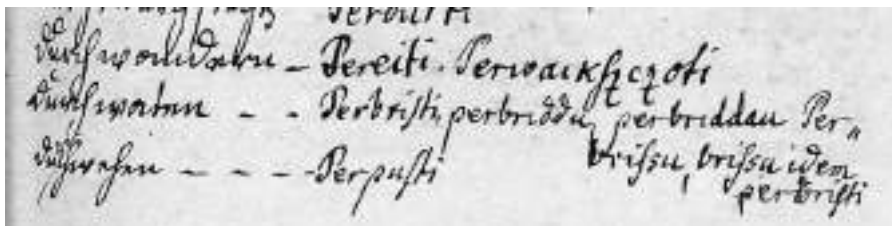 Perdurti
durchwandern – Pereiti. Perwaikſzczoti
durchwaten – – Perbriſti, perbriddu, perbriddau Per„
briſsu, briſsu idem
durchwehen – – – – Perpuſti
perbriſti